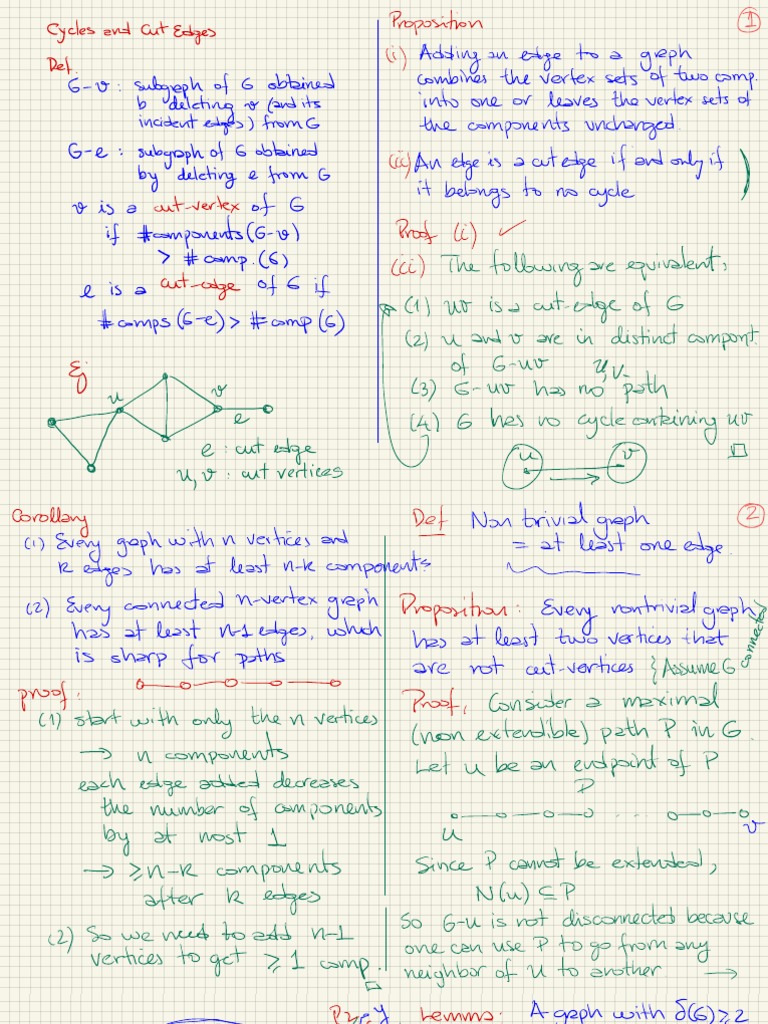 Cycles and Cut Edges
Def.
G-v : subgraph of G obtained
b deleting v (and its
incident edges) from G
G-e : subgraph of G obtained
by deleting e from G
v is a cut-vertex of G
if #components(G-v)
> # comp.(G)
e is a cut-edge of G if
#comps(G-e) > #comp(G)
Ej
u
v
e
e : cut edge
u, v : cut vertices
Proposition
1
(i) Adding an edge to a graph
combines the vertex sets of two comp.
into one or leaves the vertex sets of
the components unchanged.
(ii) An edge is a cut edge if and only if
it belongs to no cycle
Proof (i) ✓
(ii) The following are equivalent:
(1) uv is a cut-edge of G
(2) u and v are in distinct compont.
of G-uv
u,v-
(3) G-uv has no path
(4) G has no cycle containing uv
□
u
v
Corollary
(1) Every graph with n vertices and
k edges has at least n-k components.
(2) Every connected n-vertex graph
has at least n-1 edges, which
is sharp for paths
proof:
(1) start with only the n vertices
→ n components
each edge added decreases
the number of components
by at most 1
→ ≥n-k components
after k edges
(2) So we need to add n-1
vertices to get ≥ 1 comp.
□
Def Non trivial graph
2
= at least one edge.
Proposition: Every nontrivial graph
has at least two vertices that
are not cut-vertices {Assume G connected
Proof. Consider a maximal
(non extendible) path P in G.
Let u be an endpoint of P
P
u
v
Since P cannot be extended,
N(u) ⊆ P
So G-u is not disconnected because
one can use P to go from any
neighbor of u to another →
Lemma: A graph with δ(G) ≥ 2